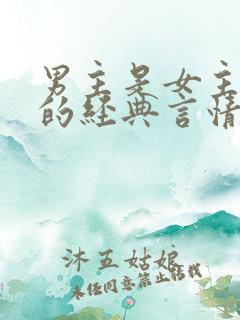 男主是女主
的经典言情
沐五姑娘
未经同意禁止转载